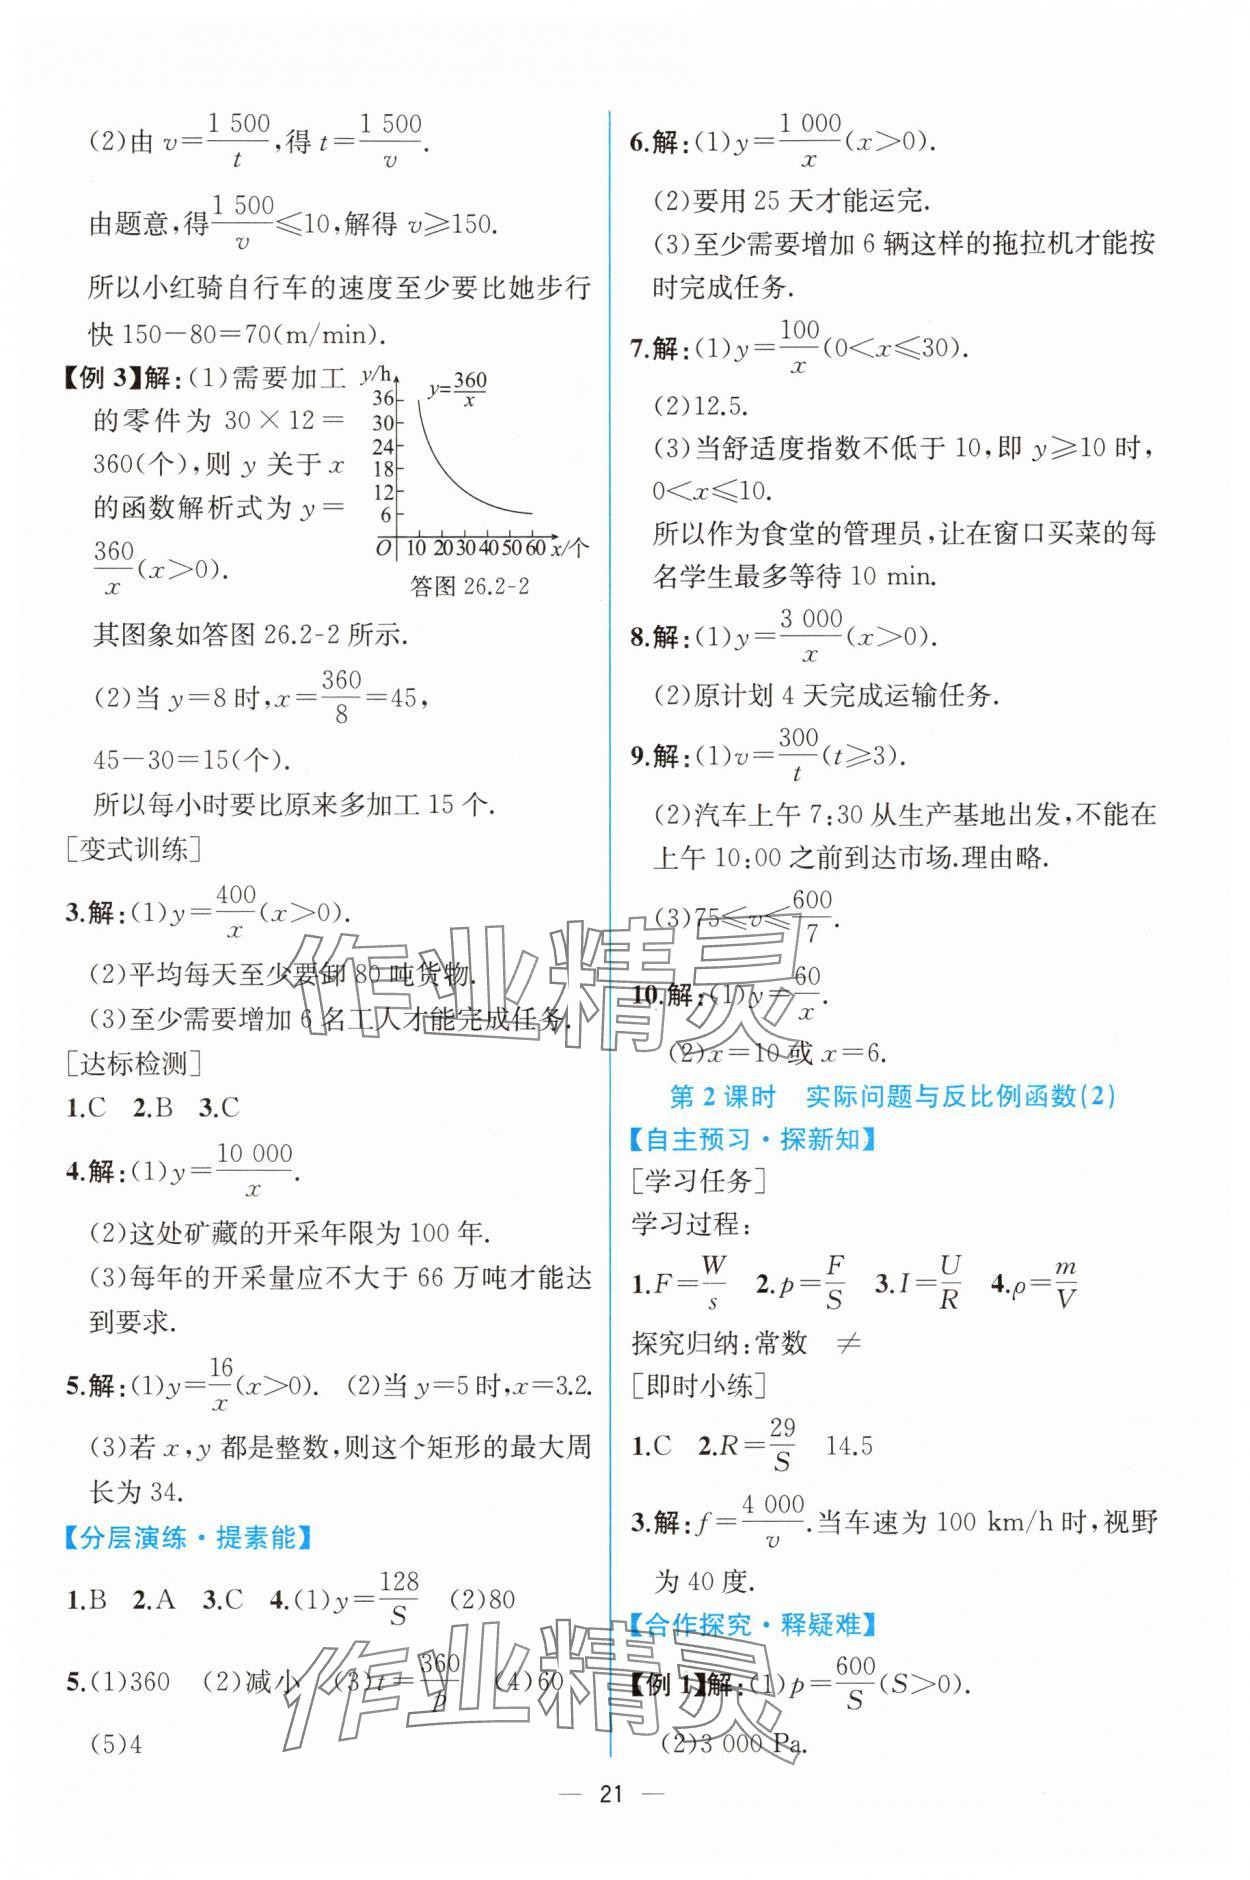 (2)由 v=1 500/t,得 t=1 500/v.
由题意,得1 500/v≤10,解得 v≥150.
所以小红骑自行车的速度至少要比她步行
快 150-80=70(m/min).
【例 3】解:(1)需要加工
的零件为 30×12=
360(个),则 y 关于 x
的函数解析式为 y=
360/x(x>0).
y/h
y=360/x
36
30
24
18
12
6
O 10 20 30 40 50 60 x/个
答图 26.2-2
其图象如答图 26.2-2 所示.
(2)当 y=8 时,x=360/8=45,
45-30=15(个).
所以每小时要比原来多加工 15 个.
[变式训练]
3.解:(1)y=400/x(x>0).
(2)平均每天至少要卸 80 吨货物.
(3)至少需要增加 6 名工人才能完成任务.
[达标检测]
1.C 2.B 3.C
4.解:(1)y=10 000/x.
(2)这处矿藏的开采年限为 100 年.
(3)每年的开采量应不大于 66 万吨才能达
到要求.
5.解:(1)y=16/x(x>0). (2)当 y=5 时,x=3.2.
(3)若 x,y 都是整数,则这个矩形的最大周
长为 34.
【分层演练·提素能】
1.B 2.A 3.C 4.(1)y=128/S (2)80
5.(1)360 (2)减小 (3)t=360/p (4)60
(5)4
6.解:(1)y=1 000/x(x>0).
(2)要用 25 天才能运完.
(3)至少需要增加 6 辆这样的拖拉机才能按
时完成任务.
7.解:(1)y=100/x(0<x≤30).
(2)12.5.
(3)当舒适度指数不低于 10,即 y≥10 时,
0<x≤10.
所以作为食堂的管理员,让在窗口买菜的每
名学生最多等待 10 min.
8.解:(1)y=3 000/x(x>0).
(2)原计划 4 天完成运输任务.
9.解:(1)v=300/t(t≥3).
(2)汽车上午 7:30 从生产基地出发,不能在
上午 10:00 之前到达市场.理由略.
(3)75≤v≤600/7.
10.解:(1)y=60/x.
(2)x=10 或 x=6.
第 2 课时 实际问题与反比例函数(2)
【自主预习·探新知】
[学习任务]
学习过程:
1.F=W/s 2.p=F/S 3.I=U/R 4.ρ=m/V
探究归纳:常数 ≠
[即时小练]
1.C 2.R=29/S 14.5
3.解:f=4 000/v.当车速为 100 km/h 时,视野
为 40 度.
【合作探究·释疑难】
【例 1】解:(1)p=600/S(S>0).
(2)3 000 Pa.
— 21 —
作业精灵
作业精灵